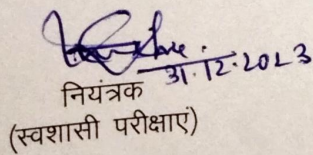 31.12.2023
नियंत्रक
(स्वशासी परीक्षाएं)